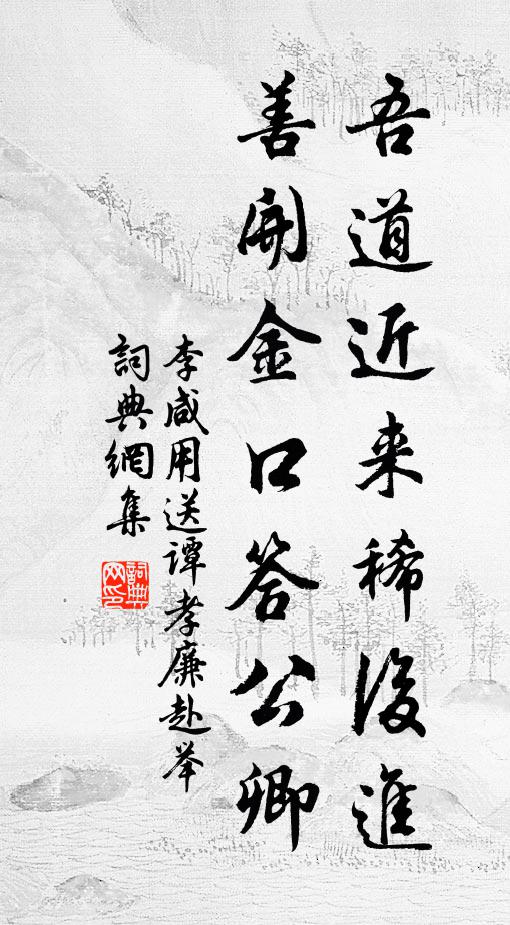 吾道近来稀後進
善開金口答公卿
李咸用送谭孝廉赴举
詞典網集
詞典网印